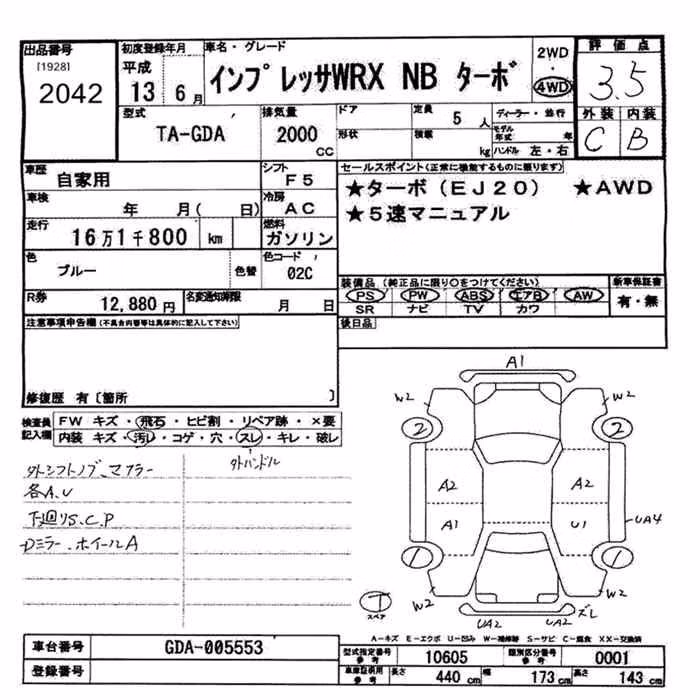 出品番号
[1928]
2042
初度登録年月
平成
13 6 月
車名・グレード
インプレッサWRX NB ターボ
2WD
・
4WD
評価点
3.5
外装 内装
C B
型式
TA-GDA
排気量
2000
cc
ドア
形状
定員 5 人
積載 kg
ディーラー・並行
モデル年式 年
ハンドル 左・右
車歴
自家用
シフト
F5
車検
年 月( 日)
冷房
AC
走行
16万1千800 km
燃料
ガソリン
色
ブルー
色替
色コード
02C
R券
12,880円
名変通知期限
月 日
セールスポイント(正常に機能するものに限ります)
★ターボ(EJ20) ★AWD
★5速マニュアル
装備品(純正品に限り○をつけてください)
PS PW ABS エアB AW
SR ナビ TV カワ
新車保証書
有・無
後日品
注意事項申告欄(不具合内容等は具体的に記入して下さい)
修復歴 有〔箇所 〕
検査員
記入欄
FW キズ・飛石・ヒビ割・リペア跡・×要
内装 キズ・汚れ・コゲ・穴・スレ・キレ・破レ
外シフトノブ、マフラー
外ハンドル
各A.U
下廻りS.C.P
Dミラー.ホイールA
A1
W2
W2
2
2
A2
A2
A1
U1
UA4
1
1
W2
W2
T
スペア
UA2
UA2
ズレ
A−キズ E−エクボ U−凹み W−補修跡 S−サビ C−腐食 XX−交換済
車台番号
GDA-005553
登録番号
型式指定番号
参考
10605
類別区分番号
参考
0001
車庫証明用
参考
長さ
440 cm
幅
173 cm
高さ
143 cm